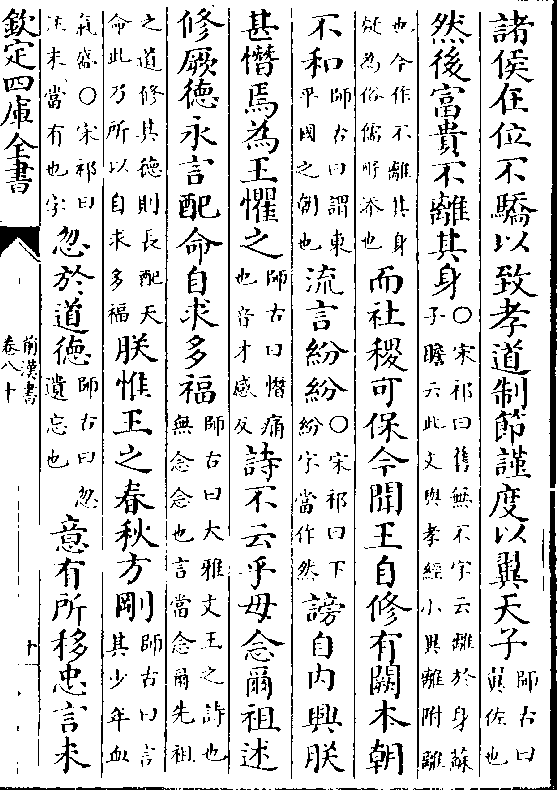 諸侯在位不驕以致孝道制節謹度以翼天子師古曰翼佐也
然後富貴不離其身〇宋祁曰舊無不字云離於身蘇子瞻云此文與孝經小異離附離
也今作不離其身疑為俗儒所添也而社稷可保今聞王自修有闕本朝
不和師古曰謂東平國之朝也流言紛紛〇宋祁曰下紛字當作然謗自内興朕
甚憯焉為王懼之師古曰憯痛也音才感反詩不云乎毋念爾祖述
修厥德永言配命自求多福師古曰大雅文王之詩也無念念也言當念爾先祖
之道修其德則長配天命此乃所以自求多福朕惟王之春秋方剛師古曰言其少年血
氣盛〇宋祁曰注未當有也字忽於道德師古曰忽遺忘也意有所移忠言未
欽定四庫全書
前漢書
卷八十
十